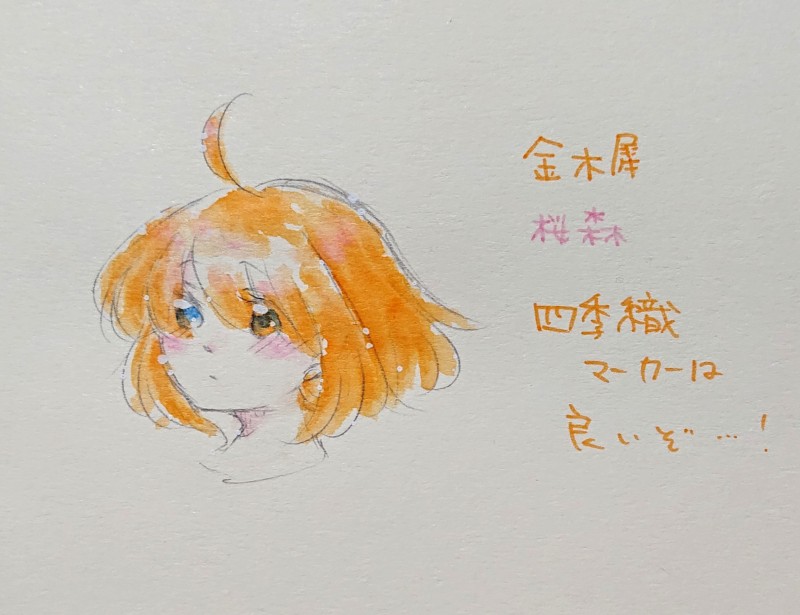 金木犀
桜森
四季織
マーカーは
良いぞ…!